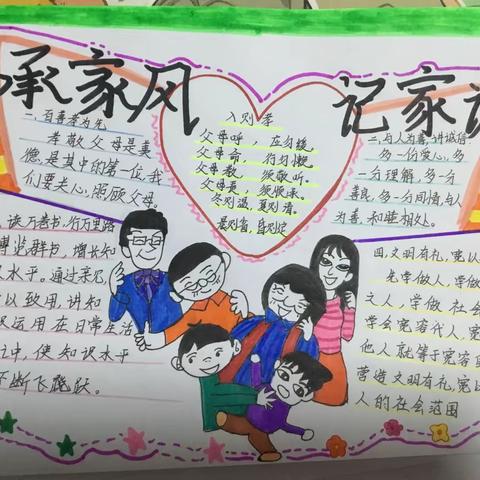 承家风
记家
一、百善孝为先
孝敬父母是美
德,是其中的第一位,我
们要关心,照顾父母。
入则孝
父母呼,应勿缓,
父母命,行勿懒,
父母教,须敬听。
父母责,须顺承。
冬则温,夏则清。
晨则省,昏则定
二、与人为善,讲诚信
多一份爱心,多
一分理解,多一分
善良,多一分同情,与人
为善,和睦相处。
读万卷书,行万里路
博览群书,增长知
识水平。通过
以致用,讲知
识运用在日常生活
之中,使知识水平
不断飞跃。
四、文明有礼,宽以
先学做人,学做
文人,学做社会
学会宽容代人,宽
他人就等于宽容
营造文明有礼,宽以
人的社会范围